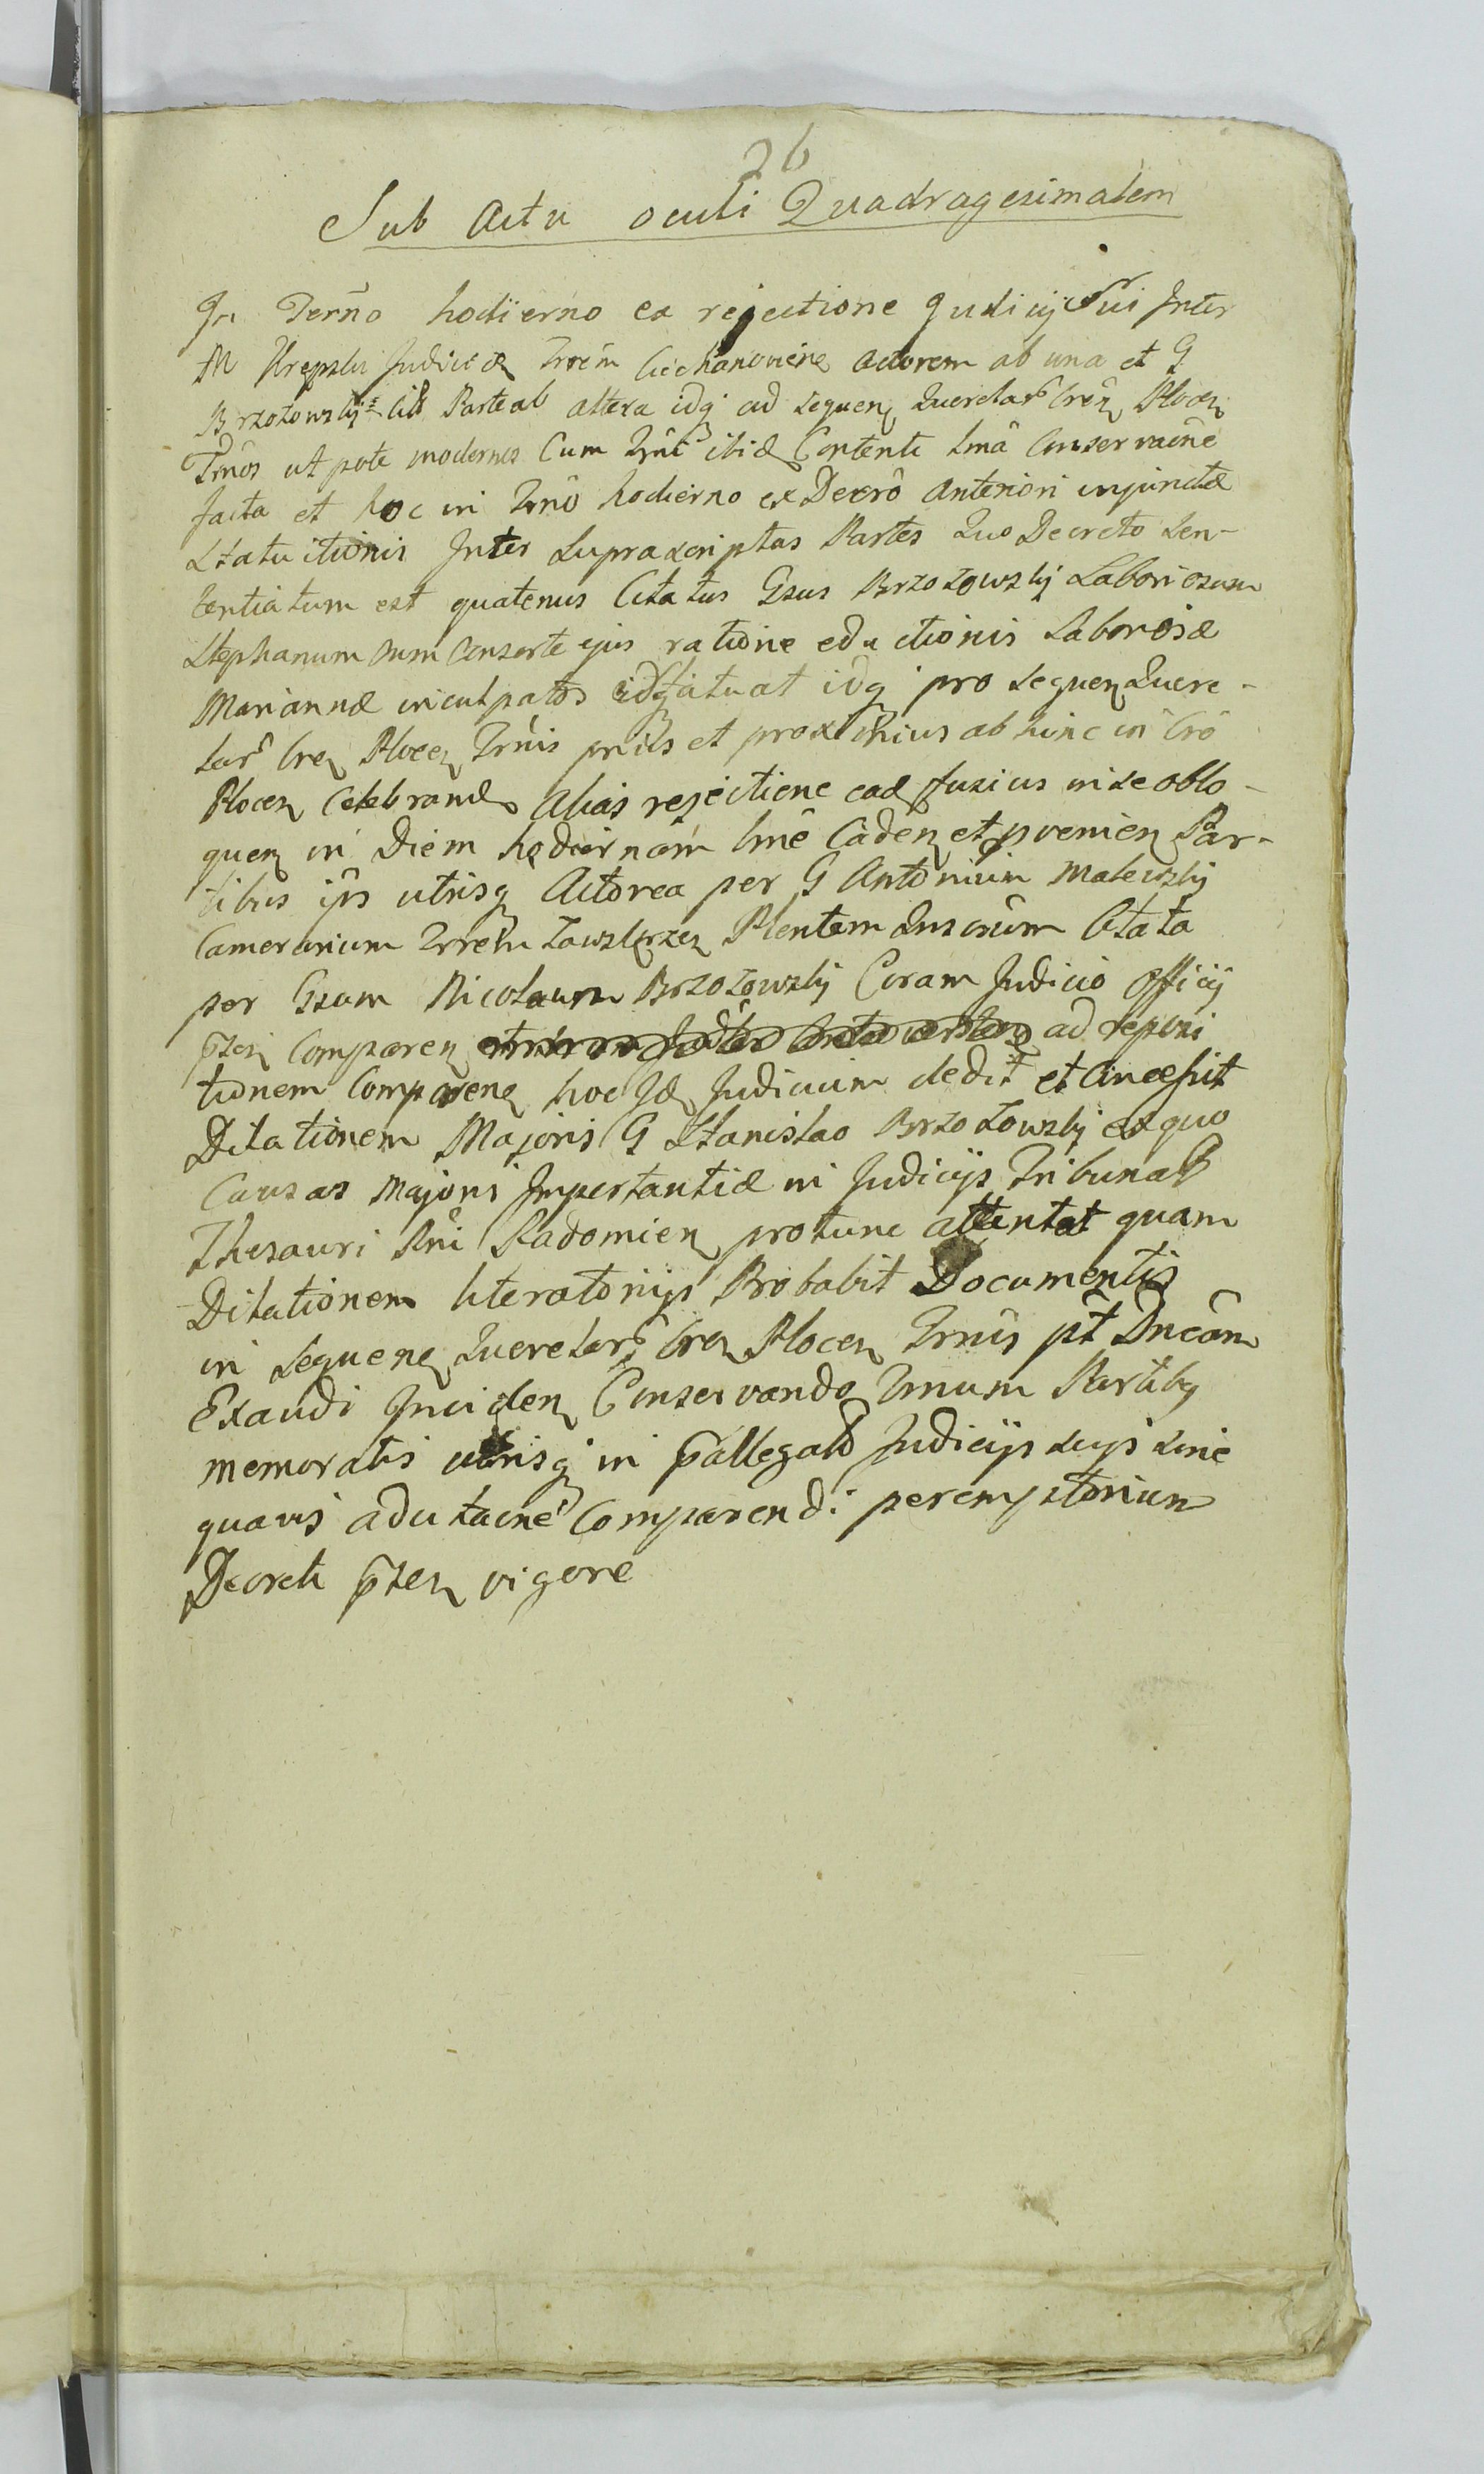 26
Sub Actu oculi Quadragesimalem
In Termo hodierno ex rejectione Judicij Sui Inter
M Krępski Judicem Trrem Ciechanovien Actorem ab una et G
Brzozowskij Citt Parte ab altera idq ad sequen Querelar Cren Plocen
Trnos utpote modernos Cum Trni ibid Contenti lma Conservaone
facta et hoc in Trno hodierno ex Decro Anteriori injunctæ
Statuitionis Inter Suprascriptas Partes Quo Decreto Sen-
tentiatum est quatenus Citatus Gsus Brzozowskij Laboriosum
Stephanum cum Consorte ejus ratione eductionis Laboriosæ
Mariannæ inculpatos statuat idq pro sequen Quere-
lar Cren Plocen Trnis priis et proximius ab hinc in Cro
Plocen Celebrand Alias rejectione ead fusius in se oblo-
quen in Diem hodiernam lme Caden et pvenien Par-
tibus ips utrisq Actorea per G Antonium Malewskij
Camerarium Trrem Zawskrzen Plentem Citata
per Gsum Nicolaum Brzozowskij Coram Judicio Officij
pnten Comparen ad reposi
tionem Comparen hoc Id Judicium dedit et Concessit
Dilationem Majoris G Stanislao Brzozowskij ex quo
Causas Majoris Importantiæ in Judicijs Tribunal
Thesauri Rni Radomien protunc attentat quam
Dilationem literatorijs Probabit Documentis
in sequen Querelar Cren Plocen Trnis pt Dncam
Exaudi Inciden Conservando Trnum Partibq
memoratis utrisq in pallegat Judicijs suijs sine
quavis adcitaone Comparendi peremptorium
Decreti pnten vigore